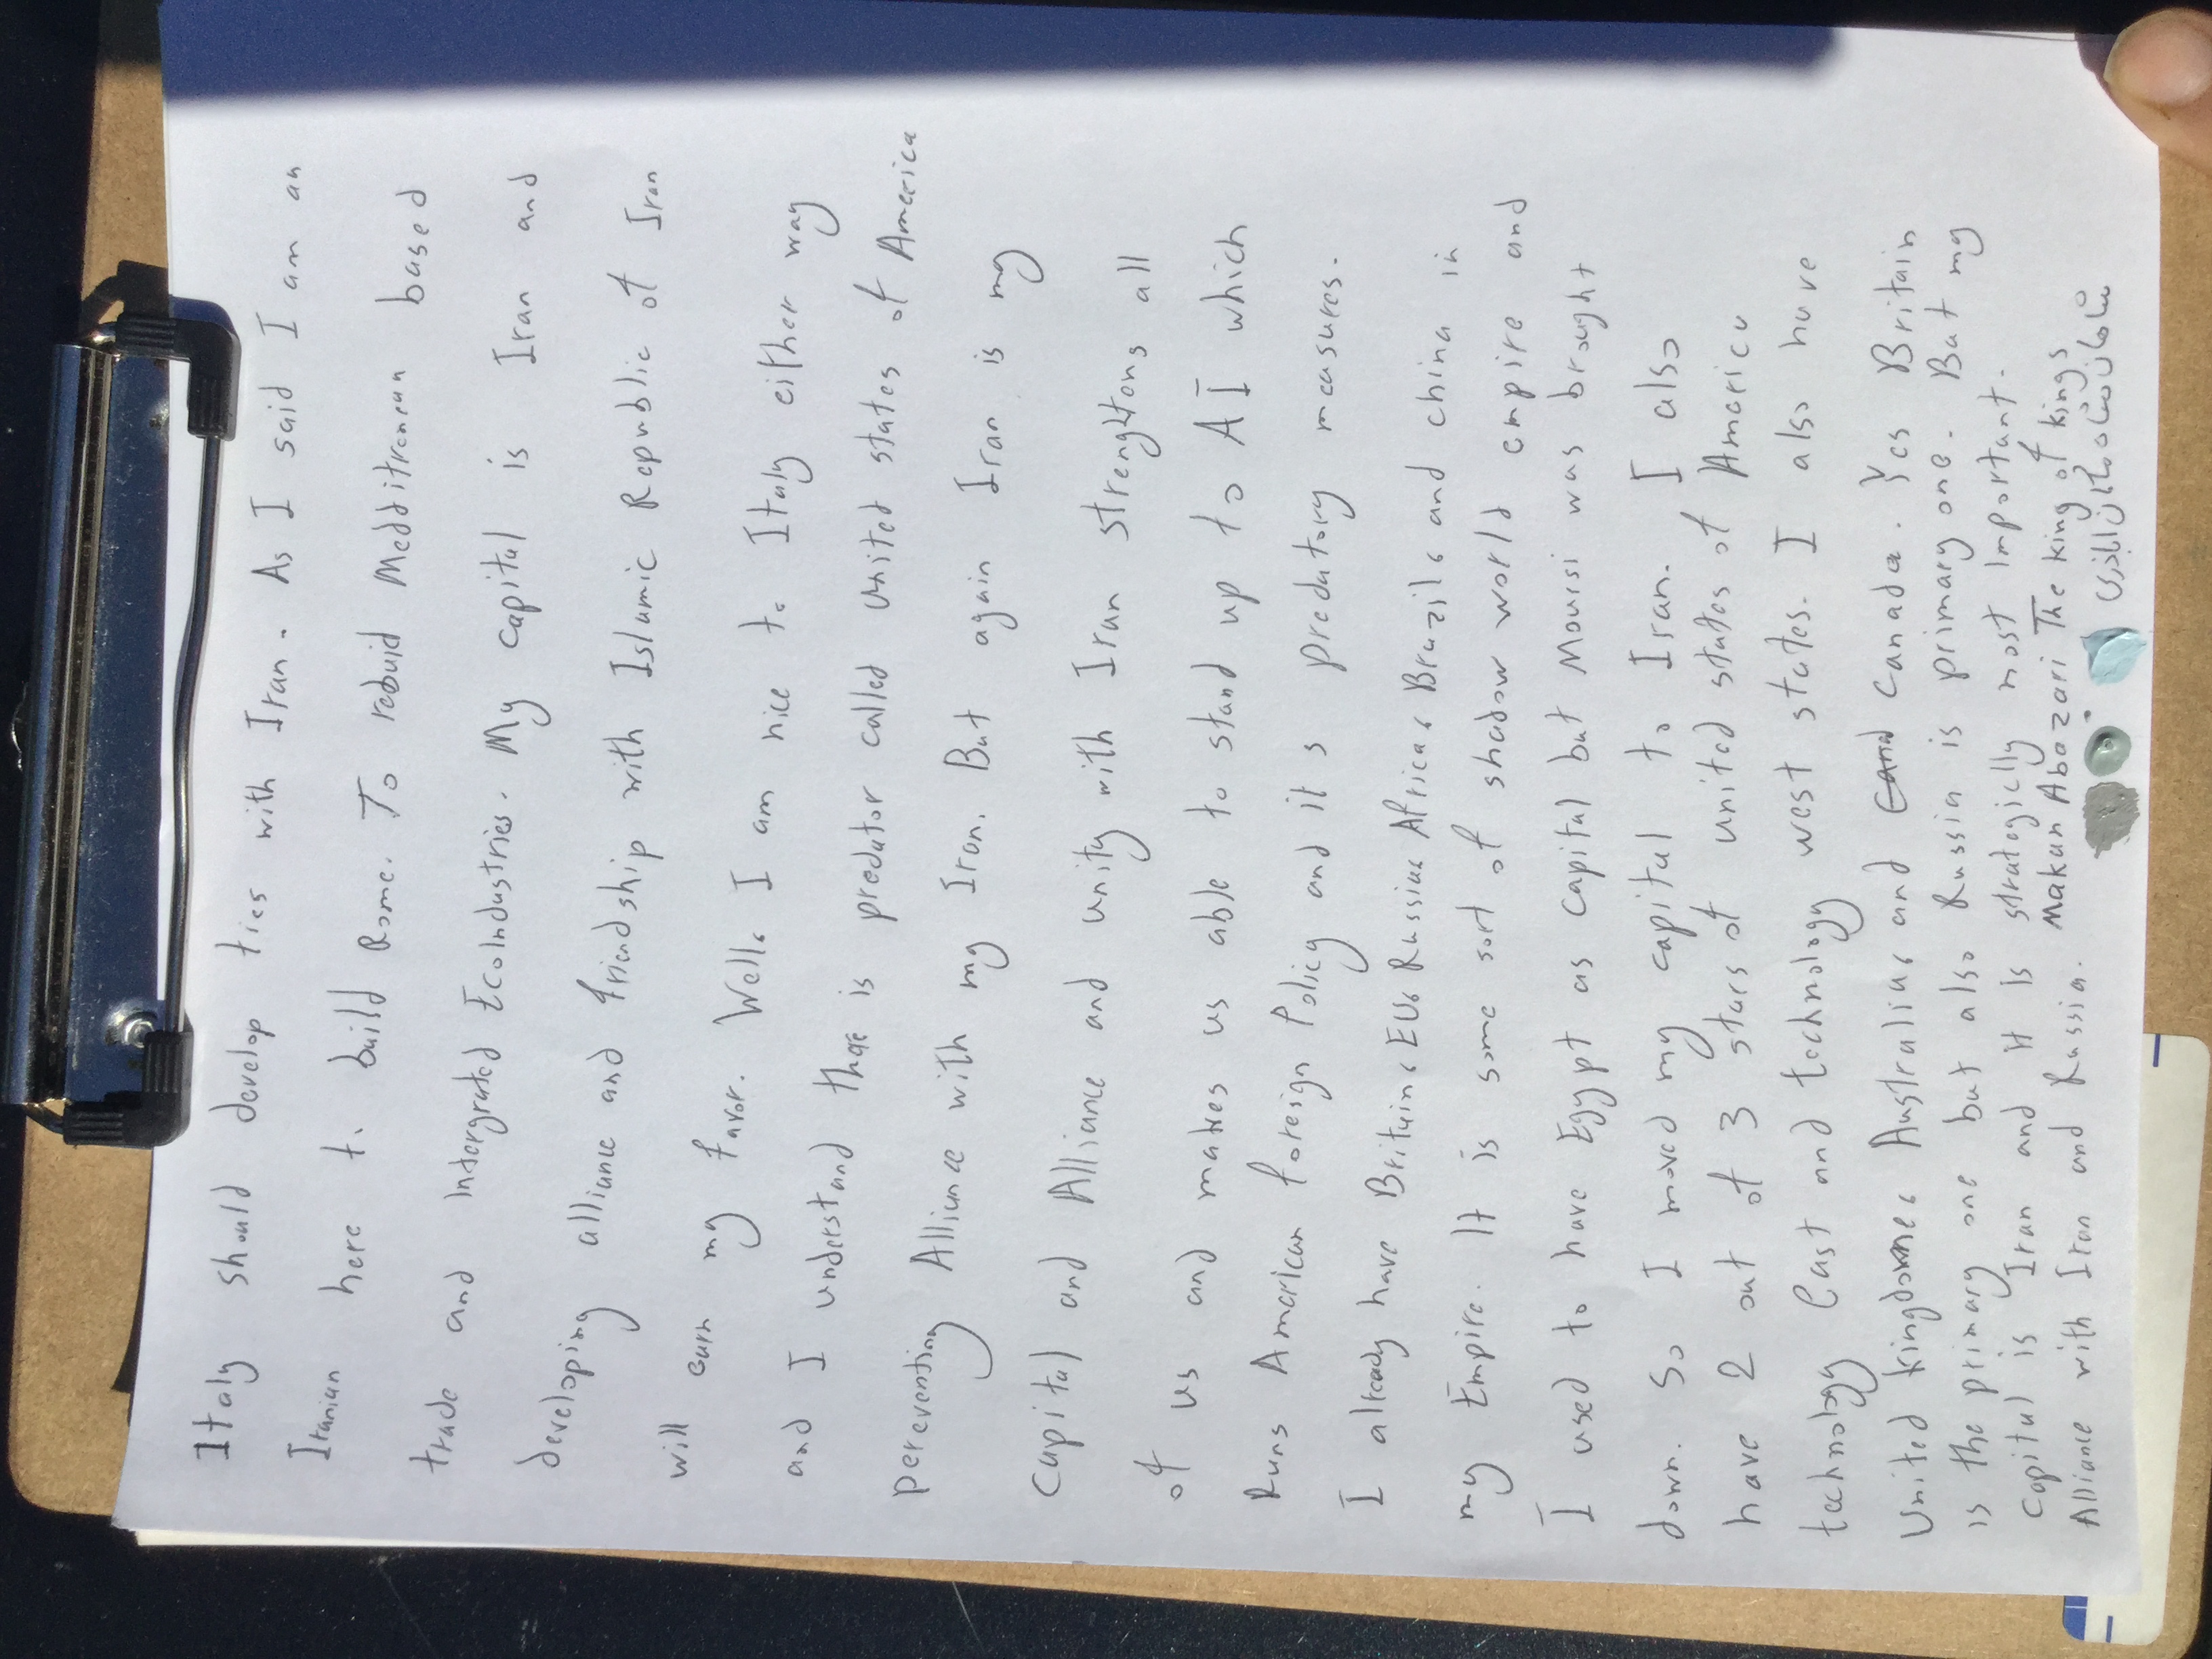 Italy should develop ties with Iran. As I said I am an
Iranian here to build Rome. To rebuid Medditrenean based
trade and Intergrated EcoIndustries. My capital is Iran and
developing alliance and friendship with Islamic Republic of Iran
will earn my favor. Well, I am nice to Italy either way
and I understand there is predator called united states of America
pereventing Alliance with my Iran. But again Iran is my
Capital and Alliance and unity with Iran strenghtons all
of us and makes us able to stand up to AI which
Runs American Foreign Policy and it s predatory measures.
I already have Britain, EU, Russia, Africa, Brazil, and china in
my Empire. It is some sort of shadow world empire and
I used to have Egypt as capital but Moursi was brought
down. So I moved my capital to Iran. I also
have 2 out of 3 stars of united states of America
technology East and technology west states. I also have
United kingdome, Australia, and Canada. Yes Britain
is the primary one but also Russia is primary one. But my
Capital is Iran and it is strategiclly most important.
Alliance with Iran and Russia. Makan Abazari The king of kings